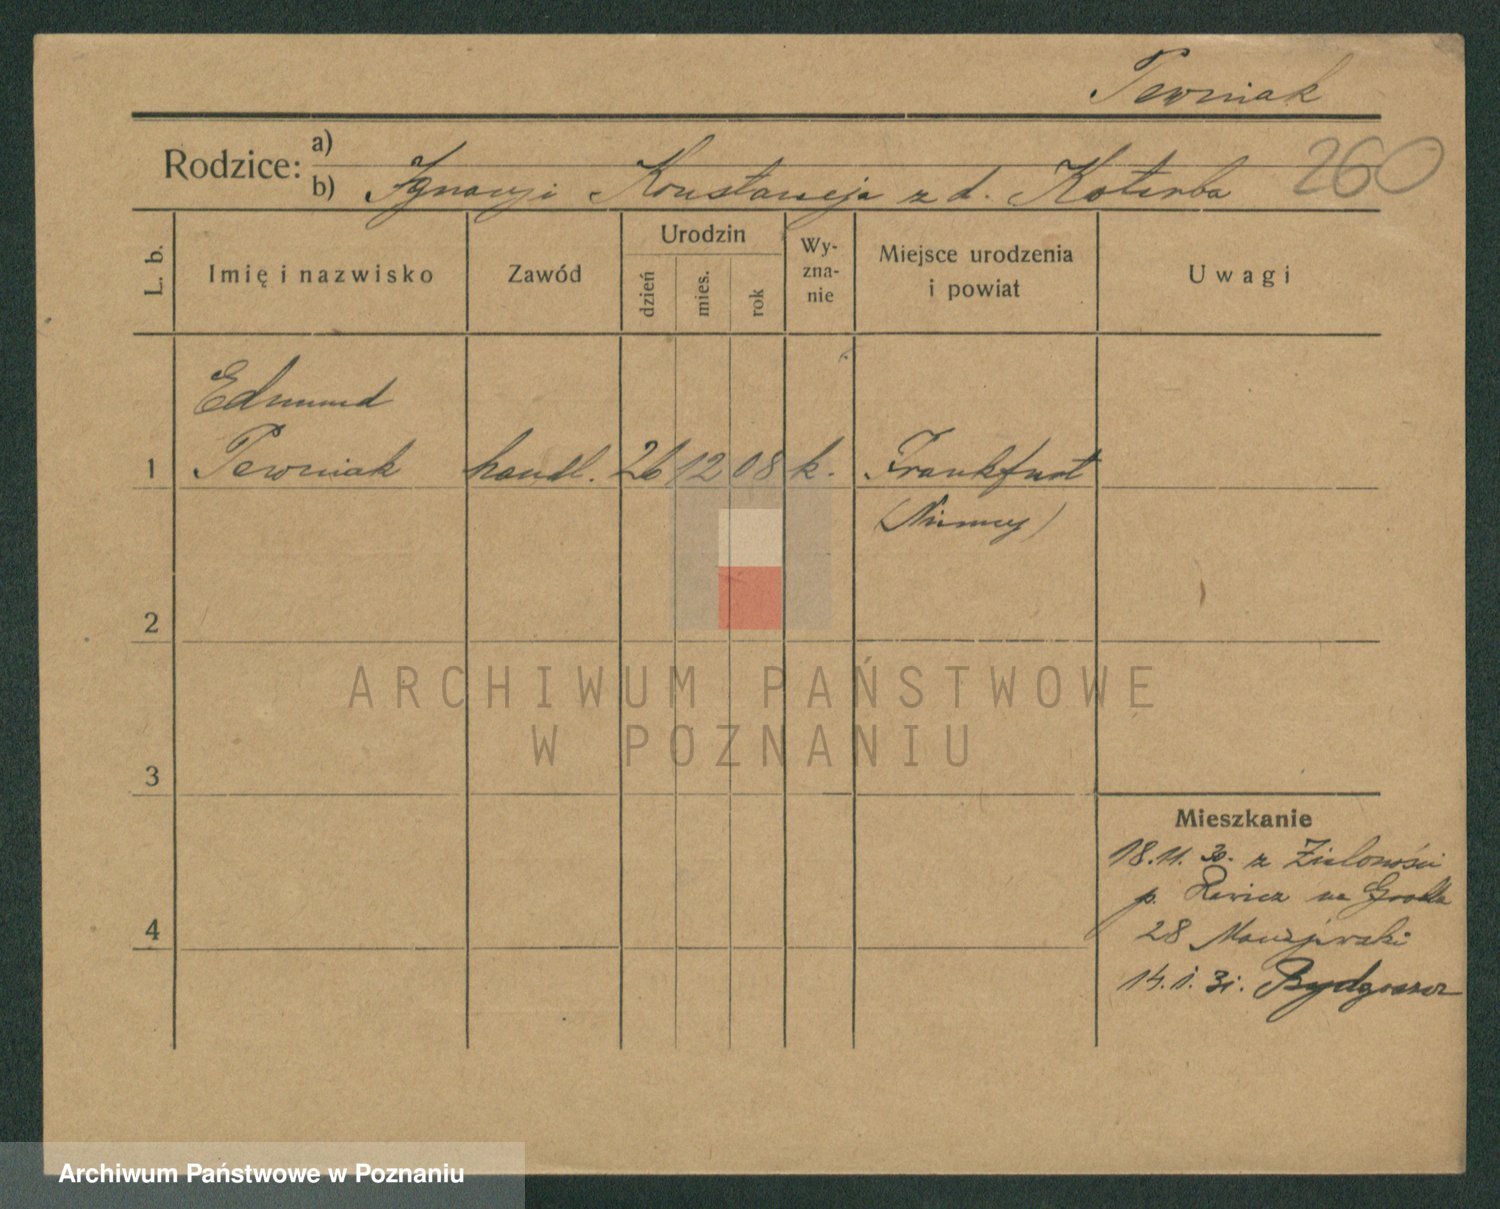 Pewniak
260
Rodzice:
a)
b) Ignacy i Konstancja z d. Koterba
L. b.
Imię i nazwisko
Zawód
Urodzin
dzień
mies.
rok
Wy-
zna-
nie
Miejsce urodzenia
i powiat
Uwagi
Edmund
1 Pewniak handl. 26 12 08 k. Frankfurt
(Niemcy)
2
3
4
Mieszkanie
18.11. 30. z
p. Rawicz na
28
14.1.31. Bydgoszcz
ARCHIWUM PAŃSTWOWE
W POZNANIU
Archiwum Państwowe w Poznaniu